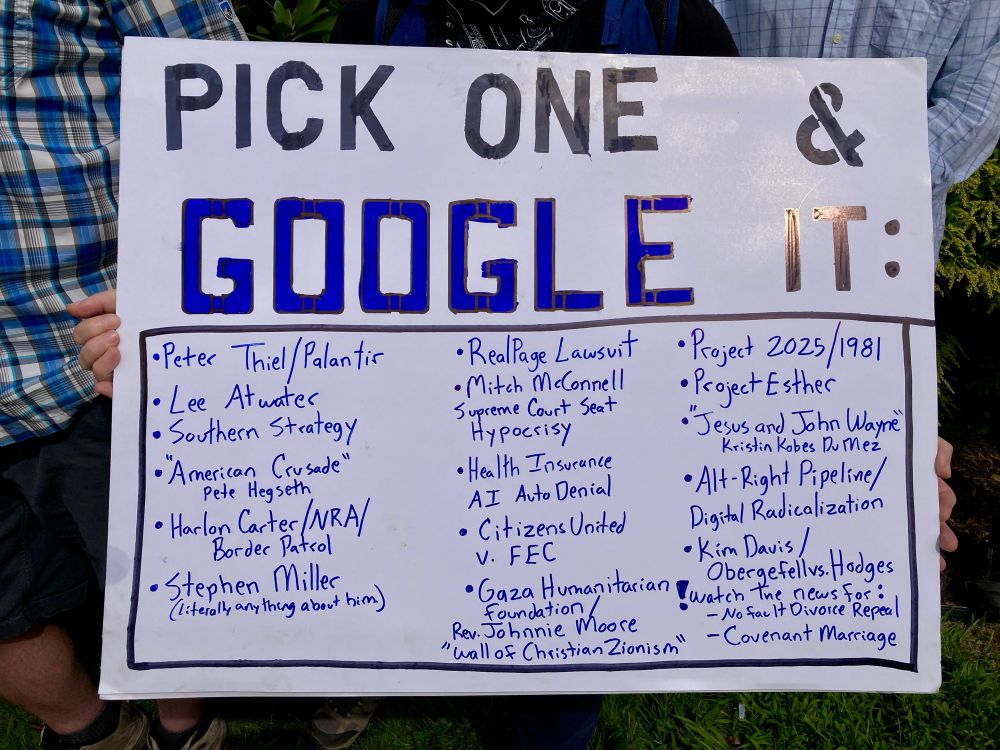 PICK ONE &
GOOGLE IT:
• Peter Thiel/Palantir
• Lee Atwater
• Southern Strategy
• "American Crusade"
Pete Hegseth
• Harlon Carter/NRA/
Border Patrol
• Stephen Miller
(literally anything about him)
• RealPage Lawsuit
• Mitch McConnell
Supreme Court Seat
Hypocrisy
• Health Insurance
AI Auto Denial
• Citizens United
v. FEC
• Gaza Humanitarian
Foundation/
Rev. Johnnie Moore
"Wall of Christian Zionism"
• Project 2025/1981
• Project Esther
• "Jesus and John Wayne"
Kristin Kobes Du Mez
• Alt-Right Pipeline/
Digital Radicalization
• Kim Davis/
Obergefell vs. Hodges
! Watch the news for:
- No Fault Divorce Repeal
- Covenant Marriage